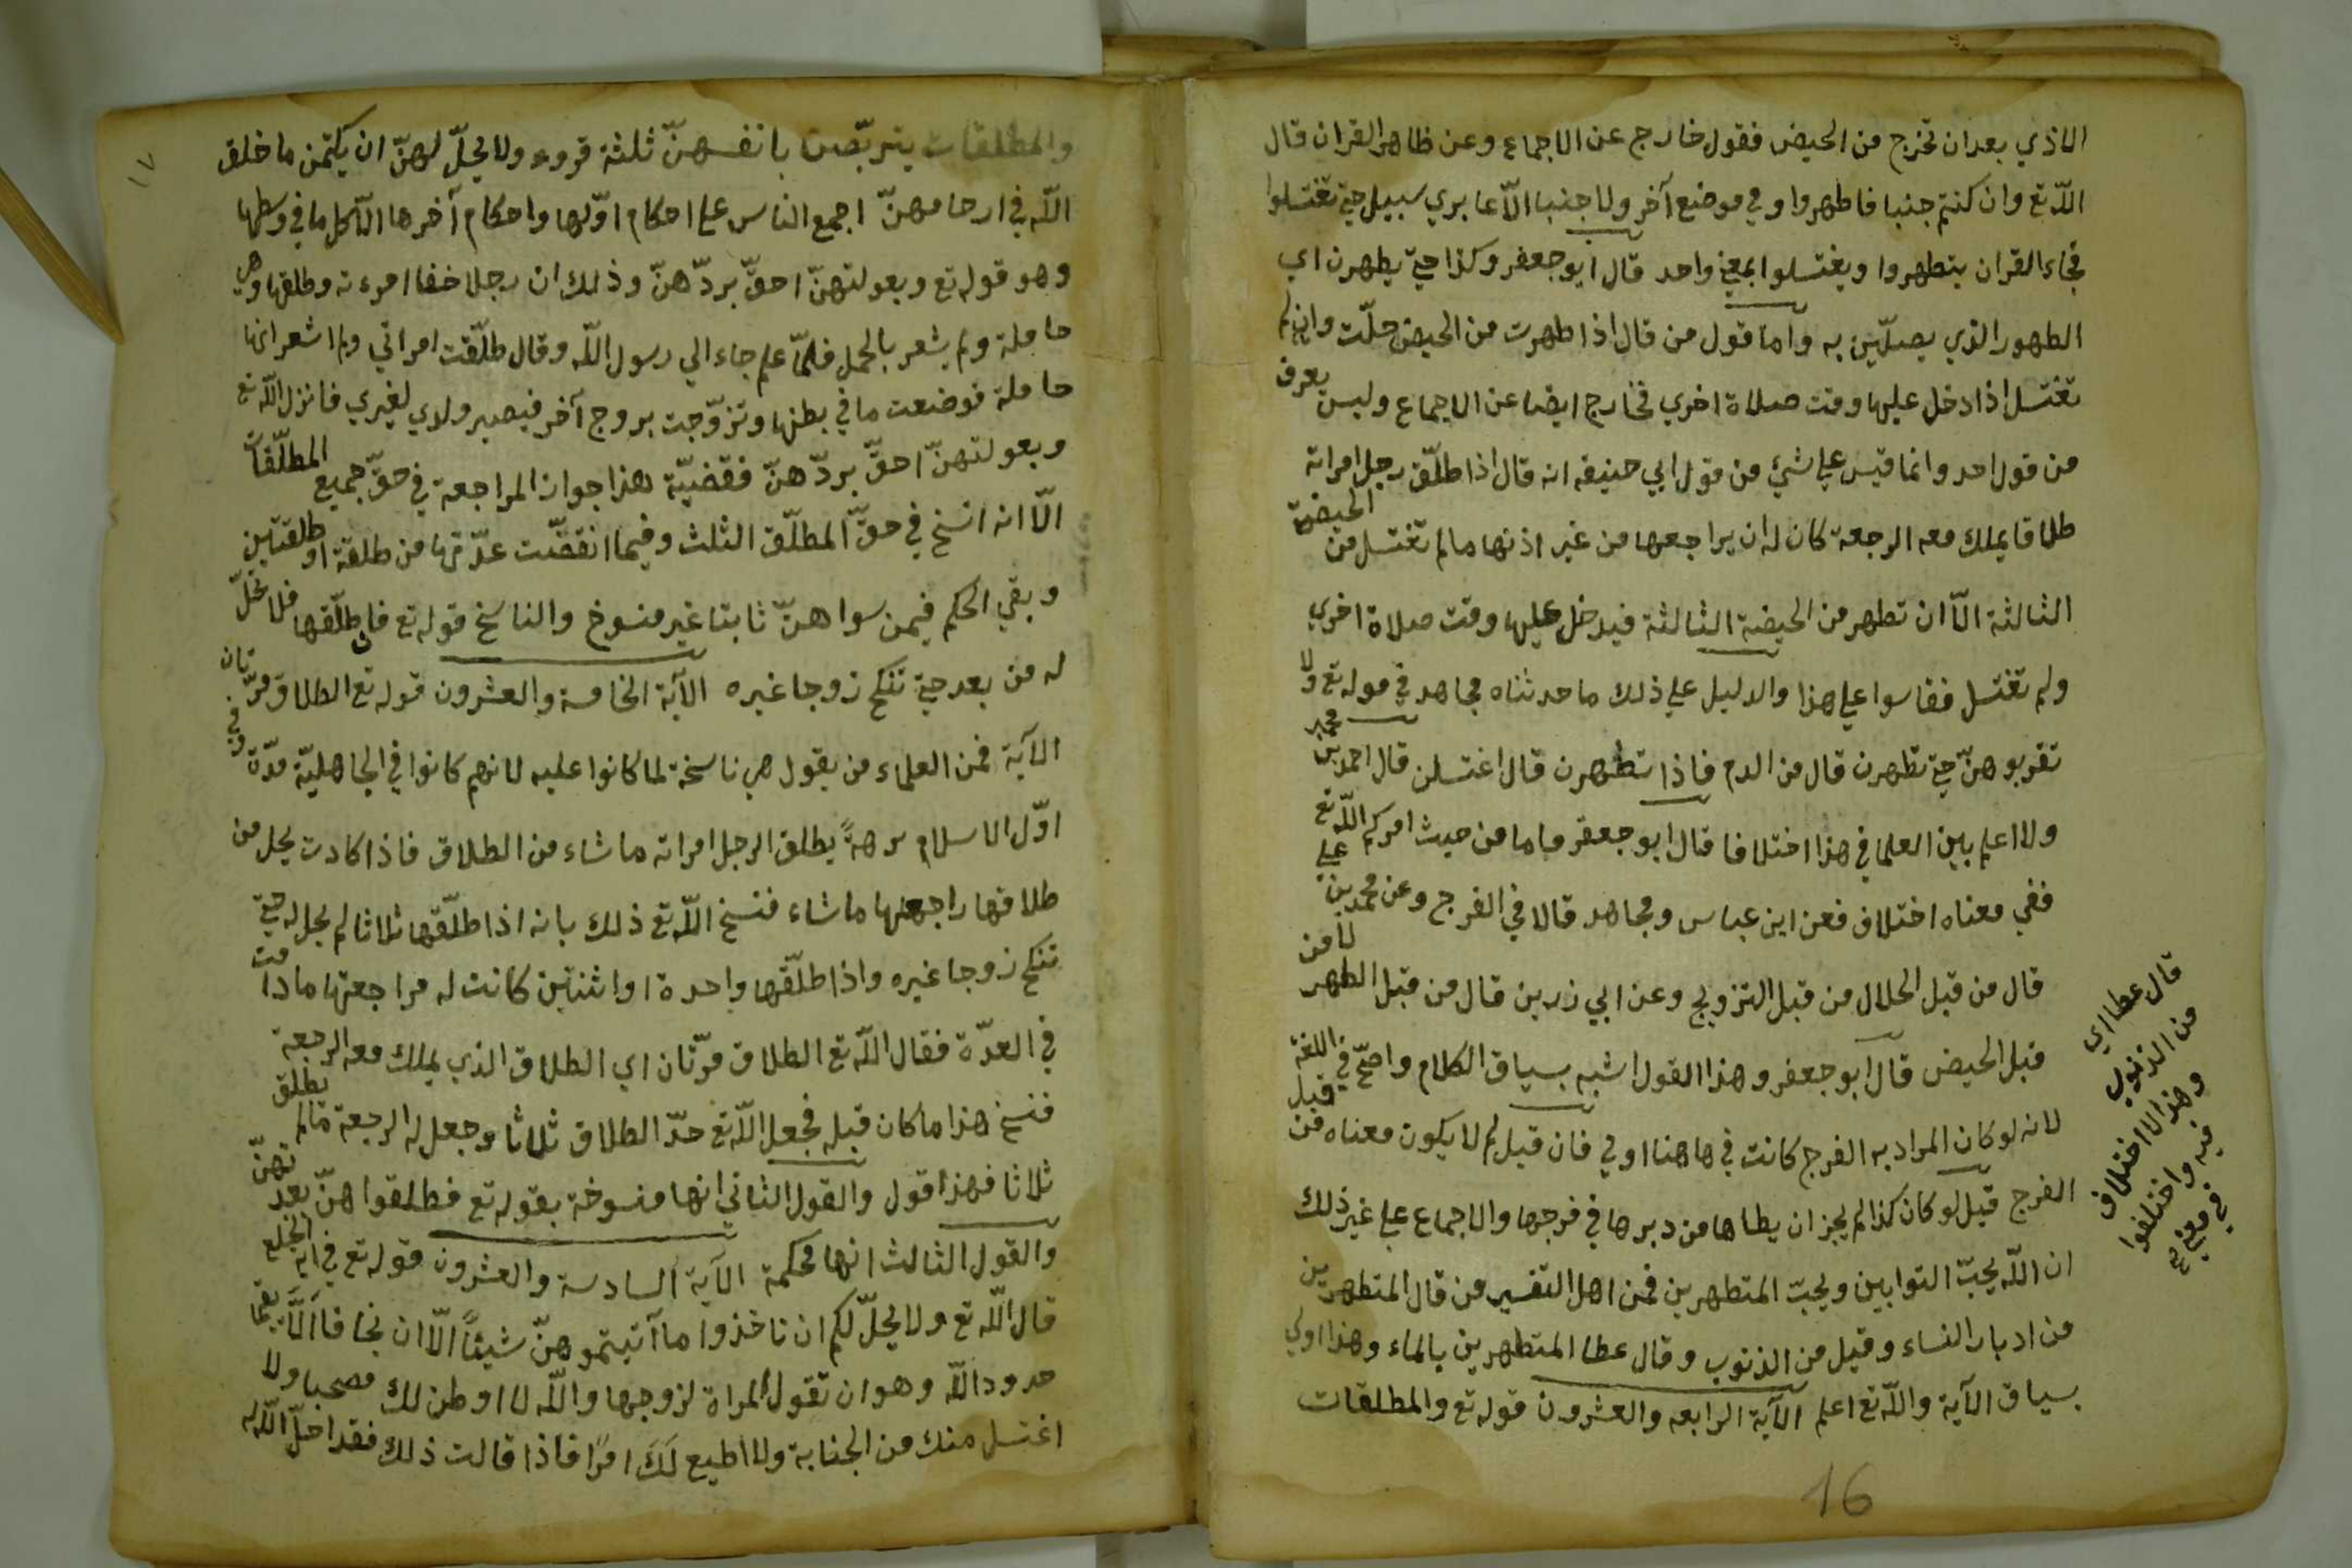 الاذي بعد ان تخرج من الحيض فقول خارج عن الاجماع وعن ظاهر القران قال
الله تع وان كنتم جنبا فاطهروا وفي موضع آخر ولا جنبا الّا عابري سبيل حتي تغتسلوا
فجاء القران يتطهروا ويغتسلوا بمعني واحد قال ابو جعفر وكذا حتي يطهرن اي
الطهور الذي يصلّين به واما قول من قال اذا طهرت من الحيض حلّت وان لم
تغتسل اذا دخل عليها وقت صلاة اخري فخارج ايضا عن الاجماع وليس يعرف
من قول احد وانما قيس علي شئ من قول ابي حنيفه انه قال اذا طلّق رجل امراته
طلاقا يملك معه الرجعة كان له ان يراجعها من غير اذنها ما لم تغتسل من الحيضة
الثالثة الّا ان تطهر من الحيضة الثالثة فيدخل عليها وقت صلاة اخري
ولم تغتسل فقاسوا علي هذا والدليل علي ذلك ما حدثناه مجاهد في قوله تع ولا
تقربوهنّ حتي تطهرن قال من الدم فاذا تطهرن قال اغتسلن قال احمد بن محمد
ولا اعلم بين العلما في هذا اختلافا قال ابو جعفر فاما من حيث امركم الله تع
ففي معناه اختلاف فعن ابن عباس ومجاهد قالا في الفرج وعن محمد بن علي
قال من قبل الحلال من قبل التزويج وعن ابي زرين قال من قبل الطهر لا من
قبل الحيض قال ابو جعفر وهذا القول اشبه بسياق الكلام واصحّ في اللغة
لانه لو كان المراد به الفرج كانت في هاهنا اولي فان قيل لم لا يكون معناه من قبل
الفرج قيل لو كان كذا لم يجز ان يطاها من دبرها في فرجها والاجماع علي غير ذلك
ان الله يحبّ التوابين ويحبّ المتطهرين فمن اهل التفسير من قال المتطهرين
من ادبار النساء وقيل من الذنوب وقال عطا المتطهرين بالماء وهذا اولي
بسياق الآية والله تع اعلم الآية الرابعه والعشرون قوله تع والمطلقات
قال عطا اي
من الذنوب
وهذا لا اختلاف
فيه واختلفوا
في معني
16
١٧
والمطلقات يتربّصن بانفسهنّ ثلثة قروء ولا يحلّ لهنّ ان يكتمن ما خلق
الله في ارحامهنّ اجمع الناس علي احكام اوّلها واحكام آخرها الّا كل ما في وسطها
وهو قوله تع وبعولتهنّ احقّ بردّهنّ وذلك ان رجلا خفا امرءته وطلقها وهي
حاملة ولم يشعر بالحمل فلمّا علم جاء الي رسول الله وقال طلّقت امراتي ولم اشعر انها
حاملة فوضعت ما في بطنها وتزوّجت بزوج آخر فيصير ولدي لغيري فانزل الله تع
وبعولتهنّ احقّ بردّهنّ فقضيّة هذا جواز المراجعة في حقّ جميع المطلّقات
الّا انه انسخ في حقّ المطلّق الثلث وفيما انقضّت عدّتها من طلقة او طلقتين
وبقي الحكم فيمن سواهنّ ثابتا غير منسوخ والناسخ قوله تع فان طلّقها فلا تحلّ
له من بعد حتي تنكح زوجا غيره الآية الخامسة والعشرون قوله تع الطلاق مرّتان
الآية فمن العلماء من يقول هي ناسخة لما كانوا عليه لانهم كانوا في الجاهليّة مدّة وفي
اوّل الاسلام برهةً يطلق الرجل امراته ما شاء من الطلاق فاذا كادت يحل من
طلاقها راجعها ما شاء فنسخ الله تع ذلك بانه اذا طلّقها ثلاثا لم يحل له حتي
تنكح زوجا غيره واذا طلّقها واحدة او اثنتين كانت له مراجعتها ما دامت
في العدّة فقال الله تع الطلاق مرّتان اي الطلاق الذي يملك معه الرجعة
فنسخ هذا ما كان قبله فجعل الله تع حدّ الطلاق ثلاثا وجعل له الرجعة ما لم يطلق
ثلاثا فهذا قول والقول الثاني انها منسوخة بقوله تع فطلقوا هنّ بعدتهنّ
والقول الثالث انها محكمة الآية السادسة والعشرون قوله تع في آية الخلع
قال الله تع ولا يحلّ لكم ان تاخذوا ما آتيتموهنّ شيئاً الّا ان يخافا الَّا يقيما
حدود الله وهو ان تقول المراة لزوجها والله لا اوطن لك مصحبا ولا
اغتسل منك من الجنابة ولا اطيع لك امرًا فاذا قالت ذلك فقد احلّ الله له